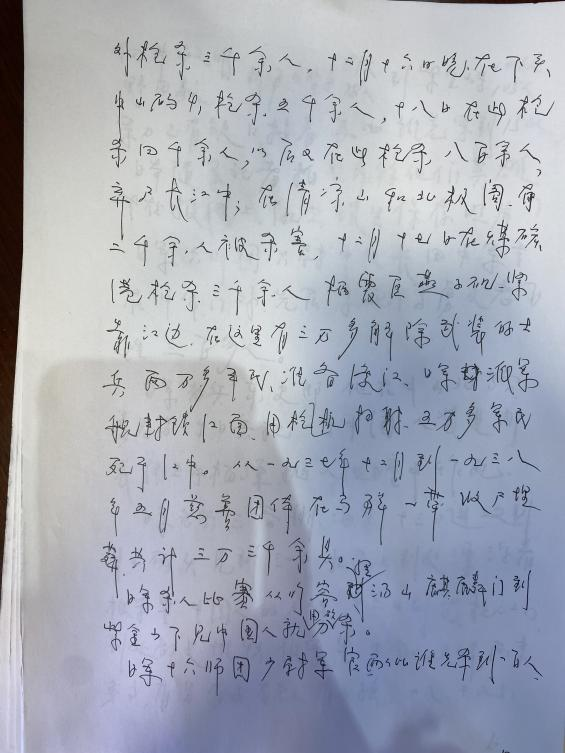 外枪杀三千余人，十二月十六日晚，在下关
中山码头，枪杀五千余人，十八日在此枪
杀四千余人，以后又在此枪杀八百余人，
弃尸长江中；在清凉山和北极阁，有
二千余人被杀害，十二月十七日在煤碳
港枪杀三千余人 栖霞区燕子矶，紧
靠江边，在这里有三万多解除武装的士
兵 两万多平民，准备渡江，日军派军
舰封锁江面，用机枪扫射，五万多军民
死于江中。从一九三七年十二月到一九三八
年五月慈善团体在马群一带收尸埋
葬，共计三万三千余具。
日军杀人比赛 从句容 汤山 麒麟门到
紫金山下 见中国人就 杀。
日军十六师团 少尉军官两人比谁先杀到一百人